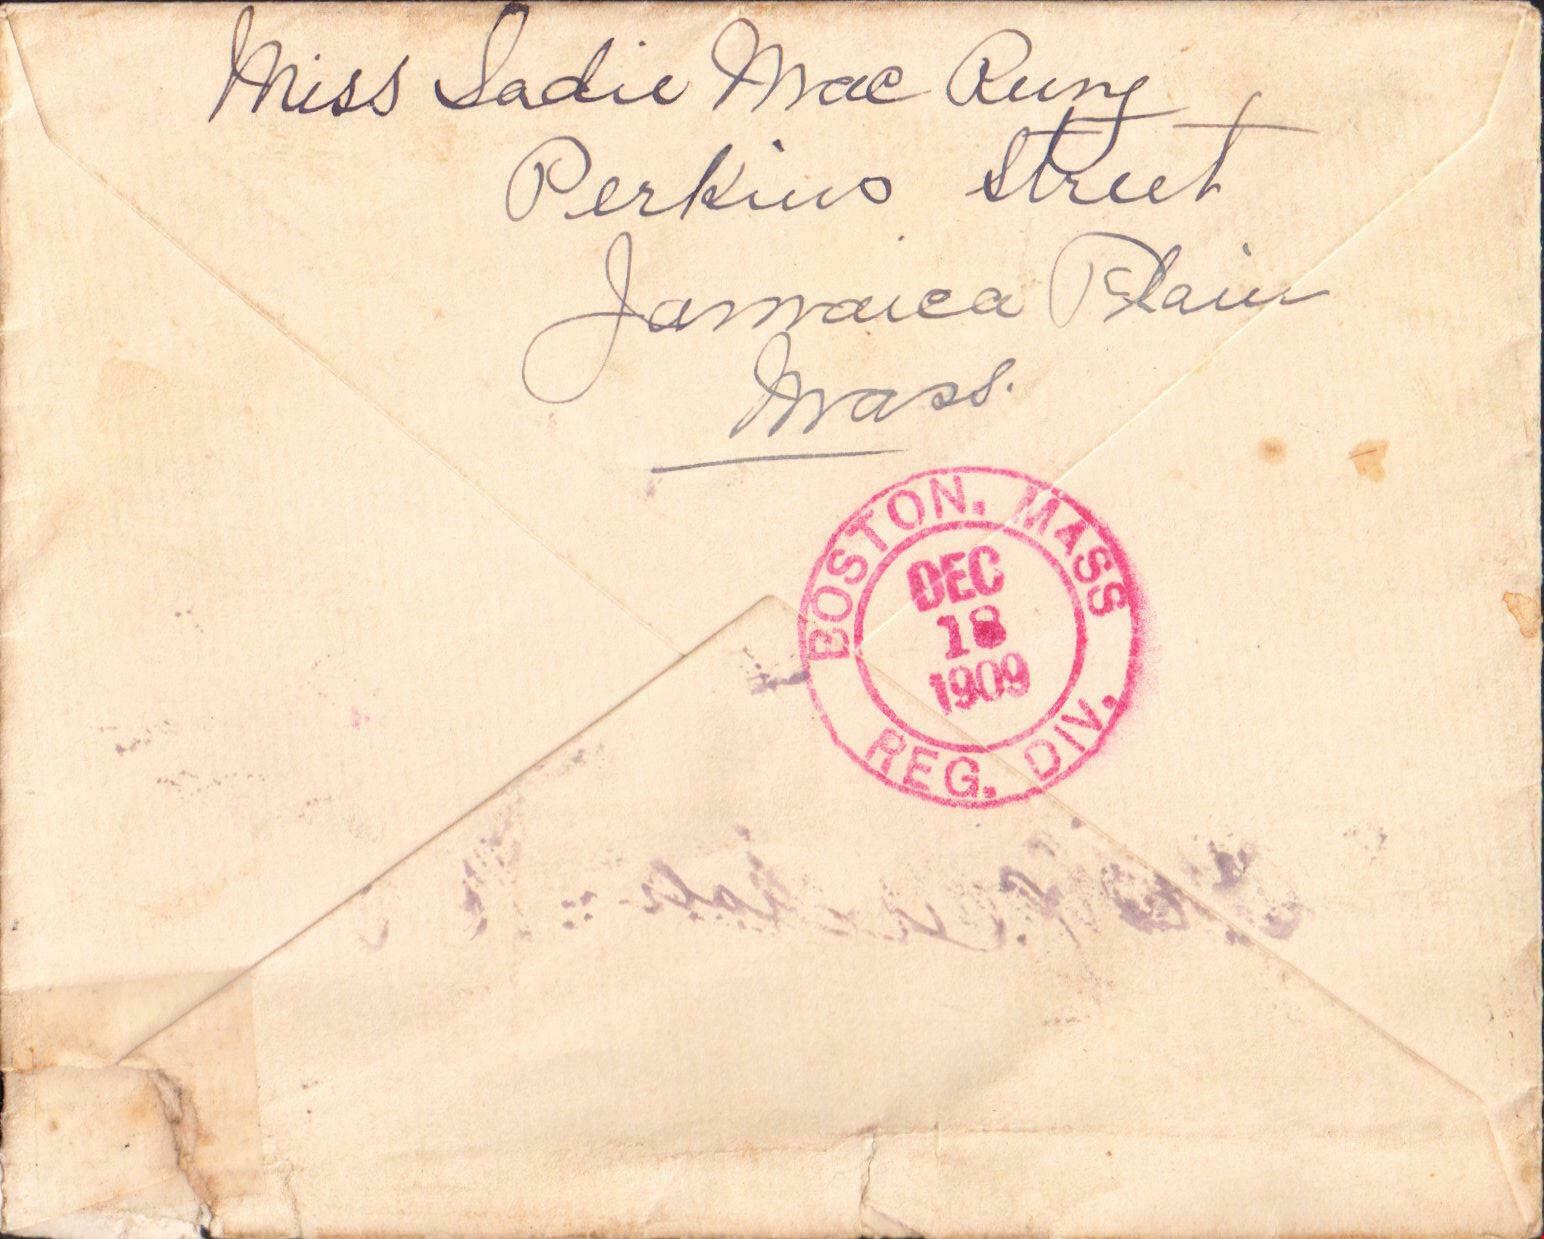 Miss Sadie Mac Rung
Perkins Street
Jamaica Plain
Mass.
BOSTON, MASS
DEC
18
1909
REG. DIV.